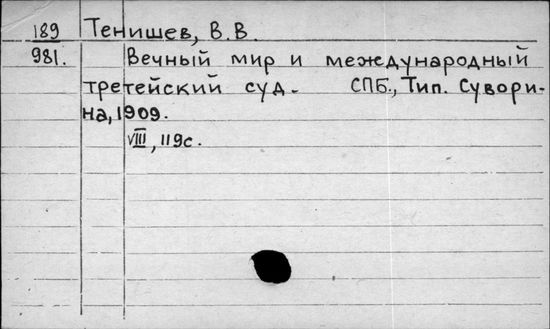 189 Тенишев, В.В.
981. Вечный мир и международный
третейский суд. СПБ., Тип. Сувори-
на, 1909.
VIII, 119с.